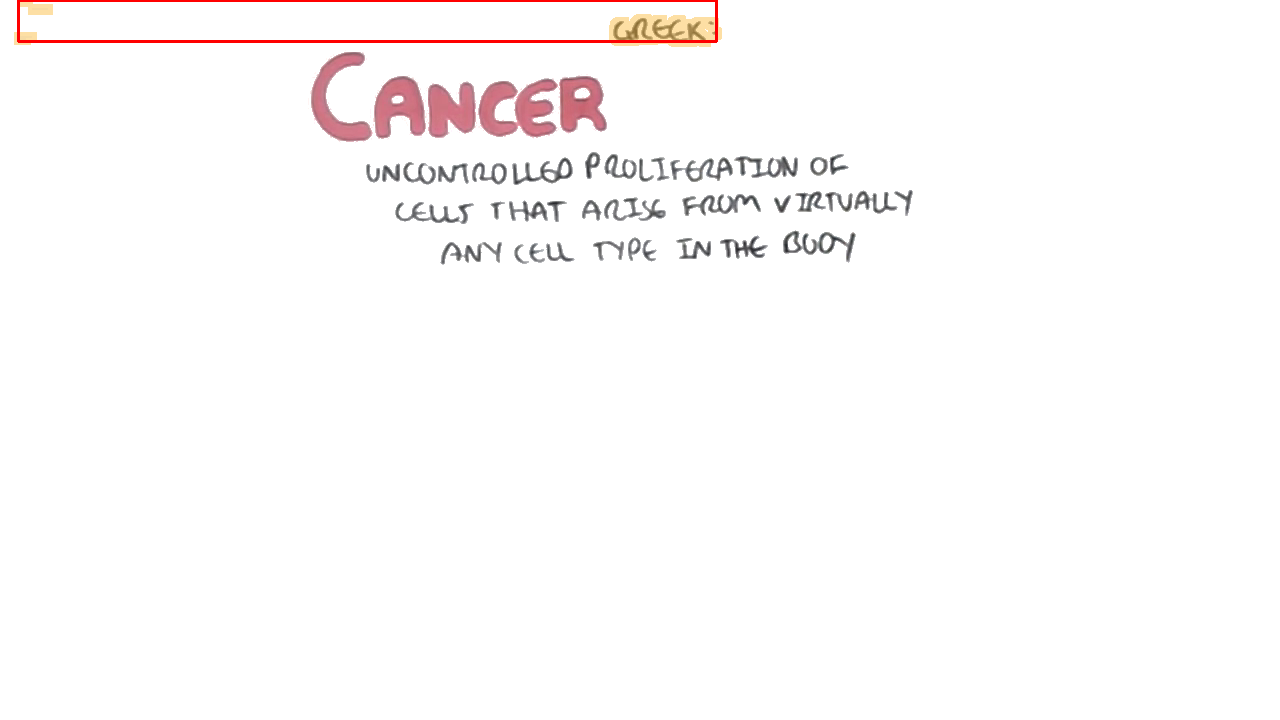 GREEK:
CANCER
UNCONTROLLED PROLIFERATION OF
CELLS THAT ARISE FROM VIRTUALLY
ANY CELL TYPE IN THE BODY